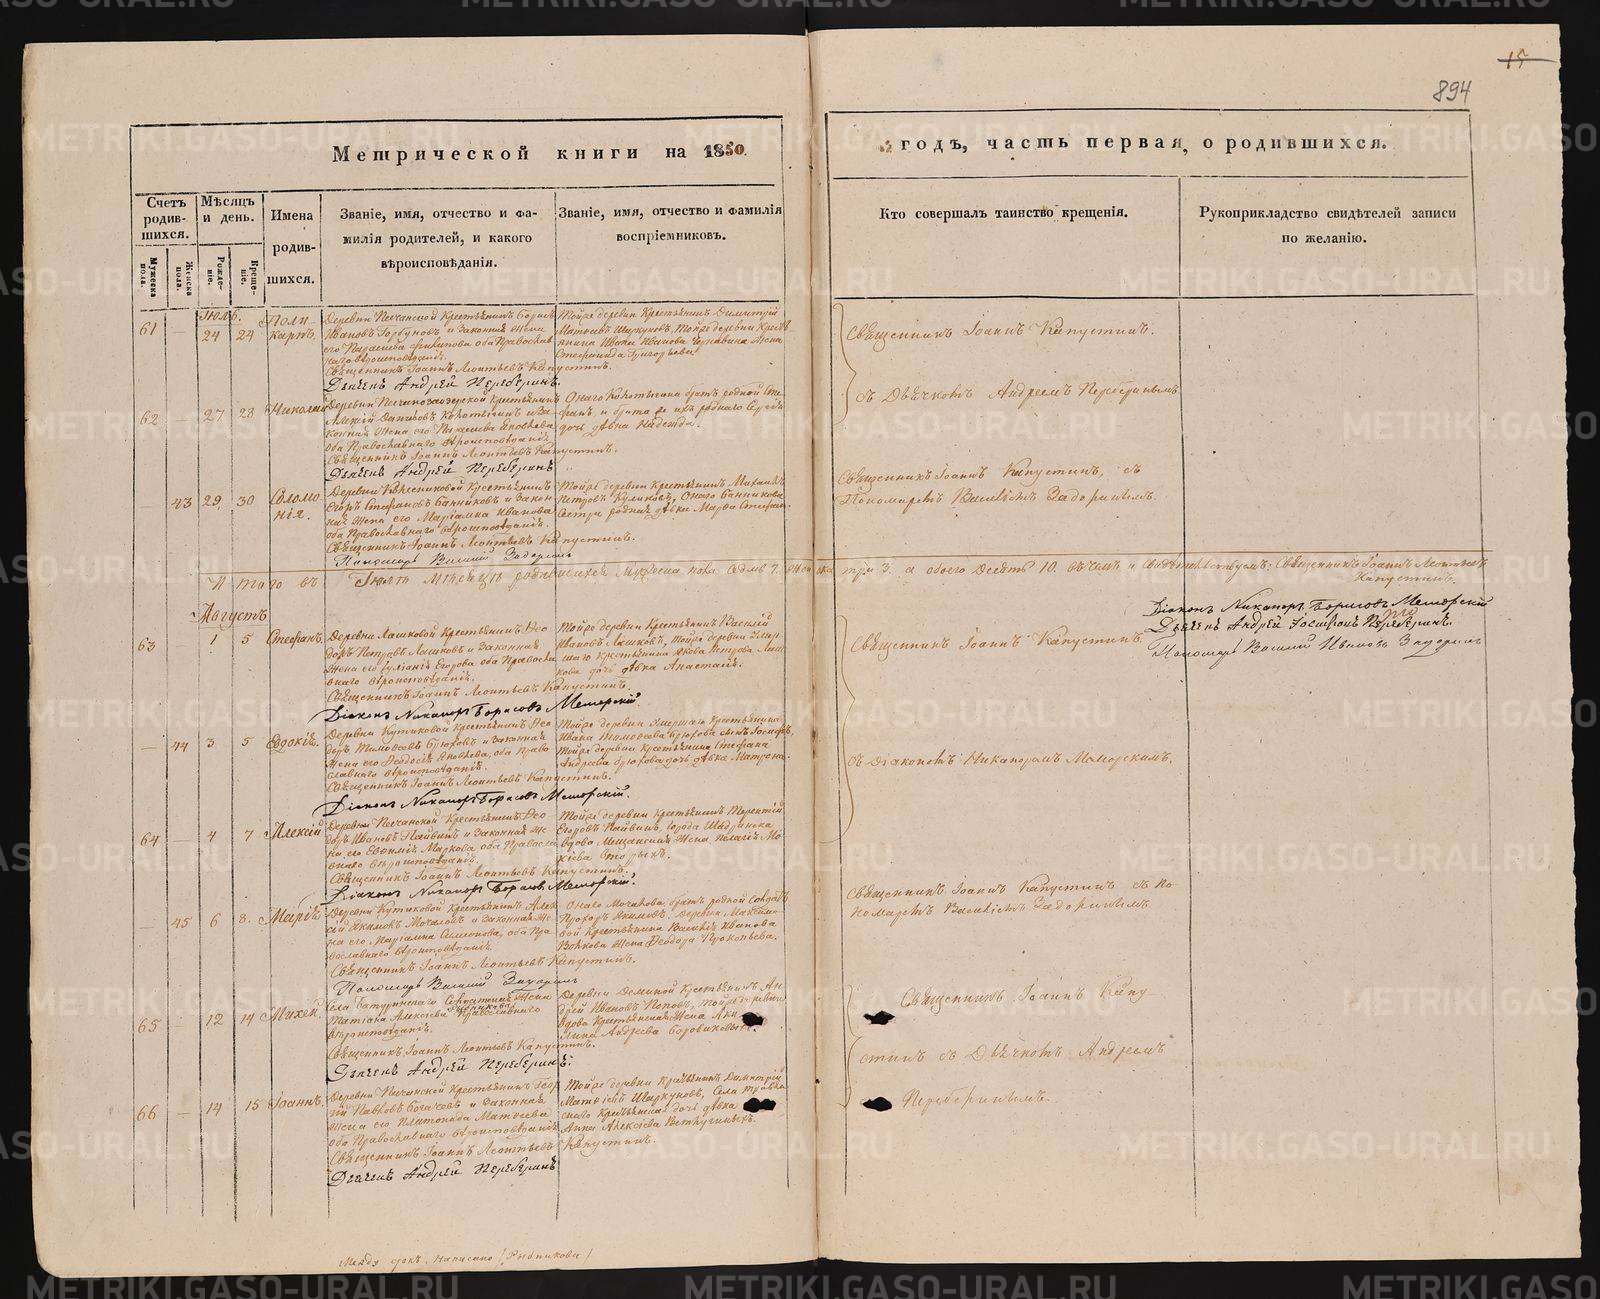 15
894
Метрической книги на 1850.
годъ, часть первая, о родившихся.
Счетъ родив- шихся.
Мѣсяцъ и день.
Имена родив- шихся.
Званіе, имя, отчество и фа- милія родителей, и какого вѣроисповѣданія.
Званіе, имя, отчество и фамилія воспріемниковъ.
Кто совершалъ таинство крещенія.
Рукоприкладство свидѣтелей записи по желанію.
Мужеска пола.
Женска пола.
Рожде- ніе.
Креще- ніе.
61 — 24 24 Поли- карпъ.
Деревни Песчанской Крестьянинъ Борисъ
Ивановъ Горбуновъ и Законная Жена
его Параскева Филипова оба Православ
наго вѣроисповѣданія.
Священникъ Іоаннъ Леонтьевъ Капустинъ.
Дьячекъ Андрей Переберинъ.
Тойже деревни Крестьянинъ Димитрій
Матвѣевъ Шаркуновъ, Тойже деревни Крест
янина Ивана Иванова Жена
Стефанида Григорьева.
Священникъ Іоаннъ Капустинъ.
съ Дьячкомъ Андреемъ Переберинымъ
62 — 27 28 Николай
Алексій Даниловъ и За
конная Жена его Параскева Яковлева
оба Православнаго вѣроисповѣданія
Священникъ Іоаннъ Леонтьевъ Капустинъ.
Дьячекъ Андрей Переберинъ
братъ родной Сте
фанъ и брата роднаго Сергѣя
дочь дѣвка Надежда.
— 43 29 30 Соломо нія.
Деревни Колесниковой Крестьянинъ
Егоръ Стефановъ Банниковъ и Закон
ная Жена его Маріамна Иванова
оба Православнаго вѣроисповѣданія.
Священникъ Іоаннъ Леонтьевъ Капустинъ.
Пономарь Василій Задоринъ
Тойже деревни Крестьянинъ Михаилъ
Петровъ Куликовъ, Онаго Банникова
Сестра родная дѣвка Марфа Стефан.
Священникъ Іоаннъ Капустинъ, съ
Пономаремъ Василіемъ Задоринымъ.
Итого въ Іюлѣ мѣсяцѣ родившихся мужеска пола седмь 7. женска три 3. а обоего десять 10. въ чемъ и свидѣтельствуемъ: Священникъ Іоаннъ Леонтьевъ
Капустинъ.
Діаконъ Никаноръ Борисовъ Меморскій
Дьячекъ Андрей Переберинъ.
Пономарь Василій Ивановъ Задоринъ
Августъ
63 — 1 5 Стефанъ.
Деревни Лашковой Крестьянинъ Ѳео
доръ Петровъ Лашковъ и Законная
Жена его Іуліанія Егорова оба Правосла
внаго вѣроисповѣданія.
Священникъ Іоаннъ Леонтьевъ Капустинъ.
Діаконъ Никаноръ Борисовъ Меморскій
Тойже деревни Крестьянинъ Василій
Ивановъ Лашковъ, Тойже деревни Умер
шаго крестьянина Якова Петрова Лаш
кова дочь дѣвка Анастасія.
Священникъ Іоаннъ Капустинъ
съ Діакономъ Никаноромъ Меморскимъ.
— 44 3 5 Евдокія.
Деревни Кутиковой Крестьянинъ Ѳео
доръ Тимоѳеевъ Брюховъ и Законная
Жена его Ѳеодосія Яковлева, оба Право
славнаго вѣроисповѣданія.
Священникъ Іоаннъ Леонтьевъ Капустинъ.
Діаконъ Никаноръ Борисовъ Меморскій.
Тойже деревни Умершаго Крестьянина
Ивана Тимоѳеева Брюхова сынъ Іосифъ,
Тойже деревни Крестьянина Стефана
Андреева Брюхова дочь дѣвка Матрона.
64 — 4 7 Алексій
Деревни Песчанской Крестьянинъ Ѳео
доръ Ивановъ Пайвинъ и Законная Же
на его Евфимія Маркова оба Правосла
внаго вѣроисповѣданія.
Священникъ Іоаннъ Леонтьевъ Капустинъ.
Діаконъ Никаноръ Борисовъ Меморскій.
Тойже деревни Крестьянинъ Терентій
Егоровъ Пайвинъ, города Шадринска
вдова Мещанская Жена Пелагія Мо
кіева
— 45 6 8. Марія
Деревни Кутиковой Крестьянинъ Алек
сѣй Якимовъ Мочаловъ и Законная Же
на его Маріамна Симеонова, оба Пра
вославнаго вѣроисповѣданія
Священникъ Іоаннъ Леонтьевъ Капустинъ.
Пономарь Василій Задоринъ
Онаго Мочалова братъ родной Солдатъ
Прохоръ Якимовъ. Деревни Максимо
вой Крестьянина Василія Иванова
Волкова Жена Ѳеодора Прокопьева.
Священникъ Іоаннъ Капустинъ съ По
номаремъ Василіемъ Задоринымъ
65 — 12 14 Михеи
Села Батуринскаго Солдатская Жена
Татіана Алексѣева Рыбникова Православнаго
вѣроисповѣданія.
Священникъ Іоаннъ Леонтьевъ Капустинъ.
Дьячекъ Андрей Переберинъ.
Деревни Деминой Крестьянинъ Ан
дрей Ивановъ Поповъ, Тойже деревни
Вдова Крестьянская Жена Аки
лина Андреева Боровикова.
Священникъ Іоаннъ Капу
стинъ съ Дьячкомъ Андреемъ
Переберинымъ.
66 — 14 15 Іоаннъ
Деревни Песчанской Крестьянинъ Геор
гій Павловъ Богачевъ и Законная
Жена его Платонида Матвѣева
оба Православнаго вѣроисповѣданія
Священникъ Іоаннъ Леонтьевъ Капустинъ.
Дьячекъ Андрей Переберинъ
Тойже деревни Крестьянинъ Димитрій
Матвѣевъ Шаркуновъ, Села
Крестьянская дочь дѣвка
Анна Алексѣева
Между строкъ написано (Рыбникова)
METRIKI.GASO-URAL.RU